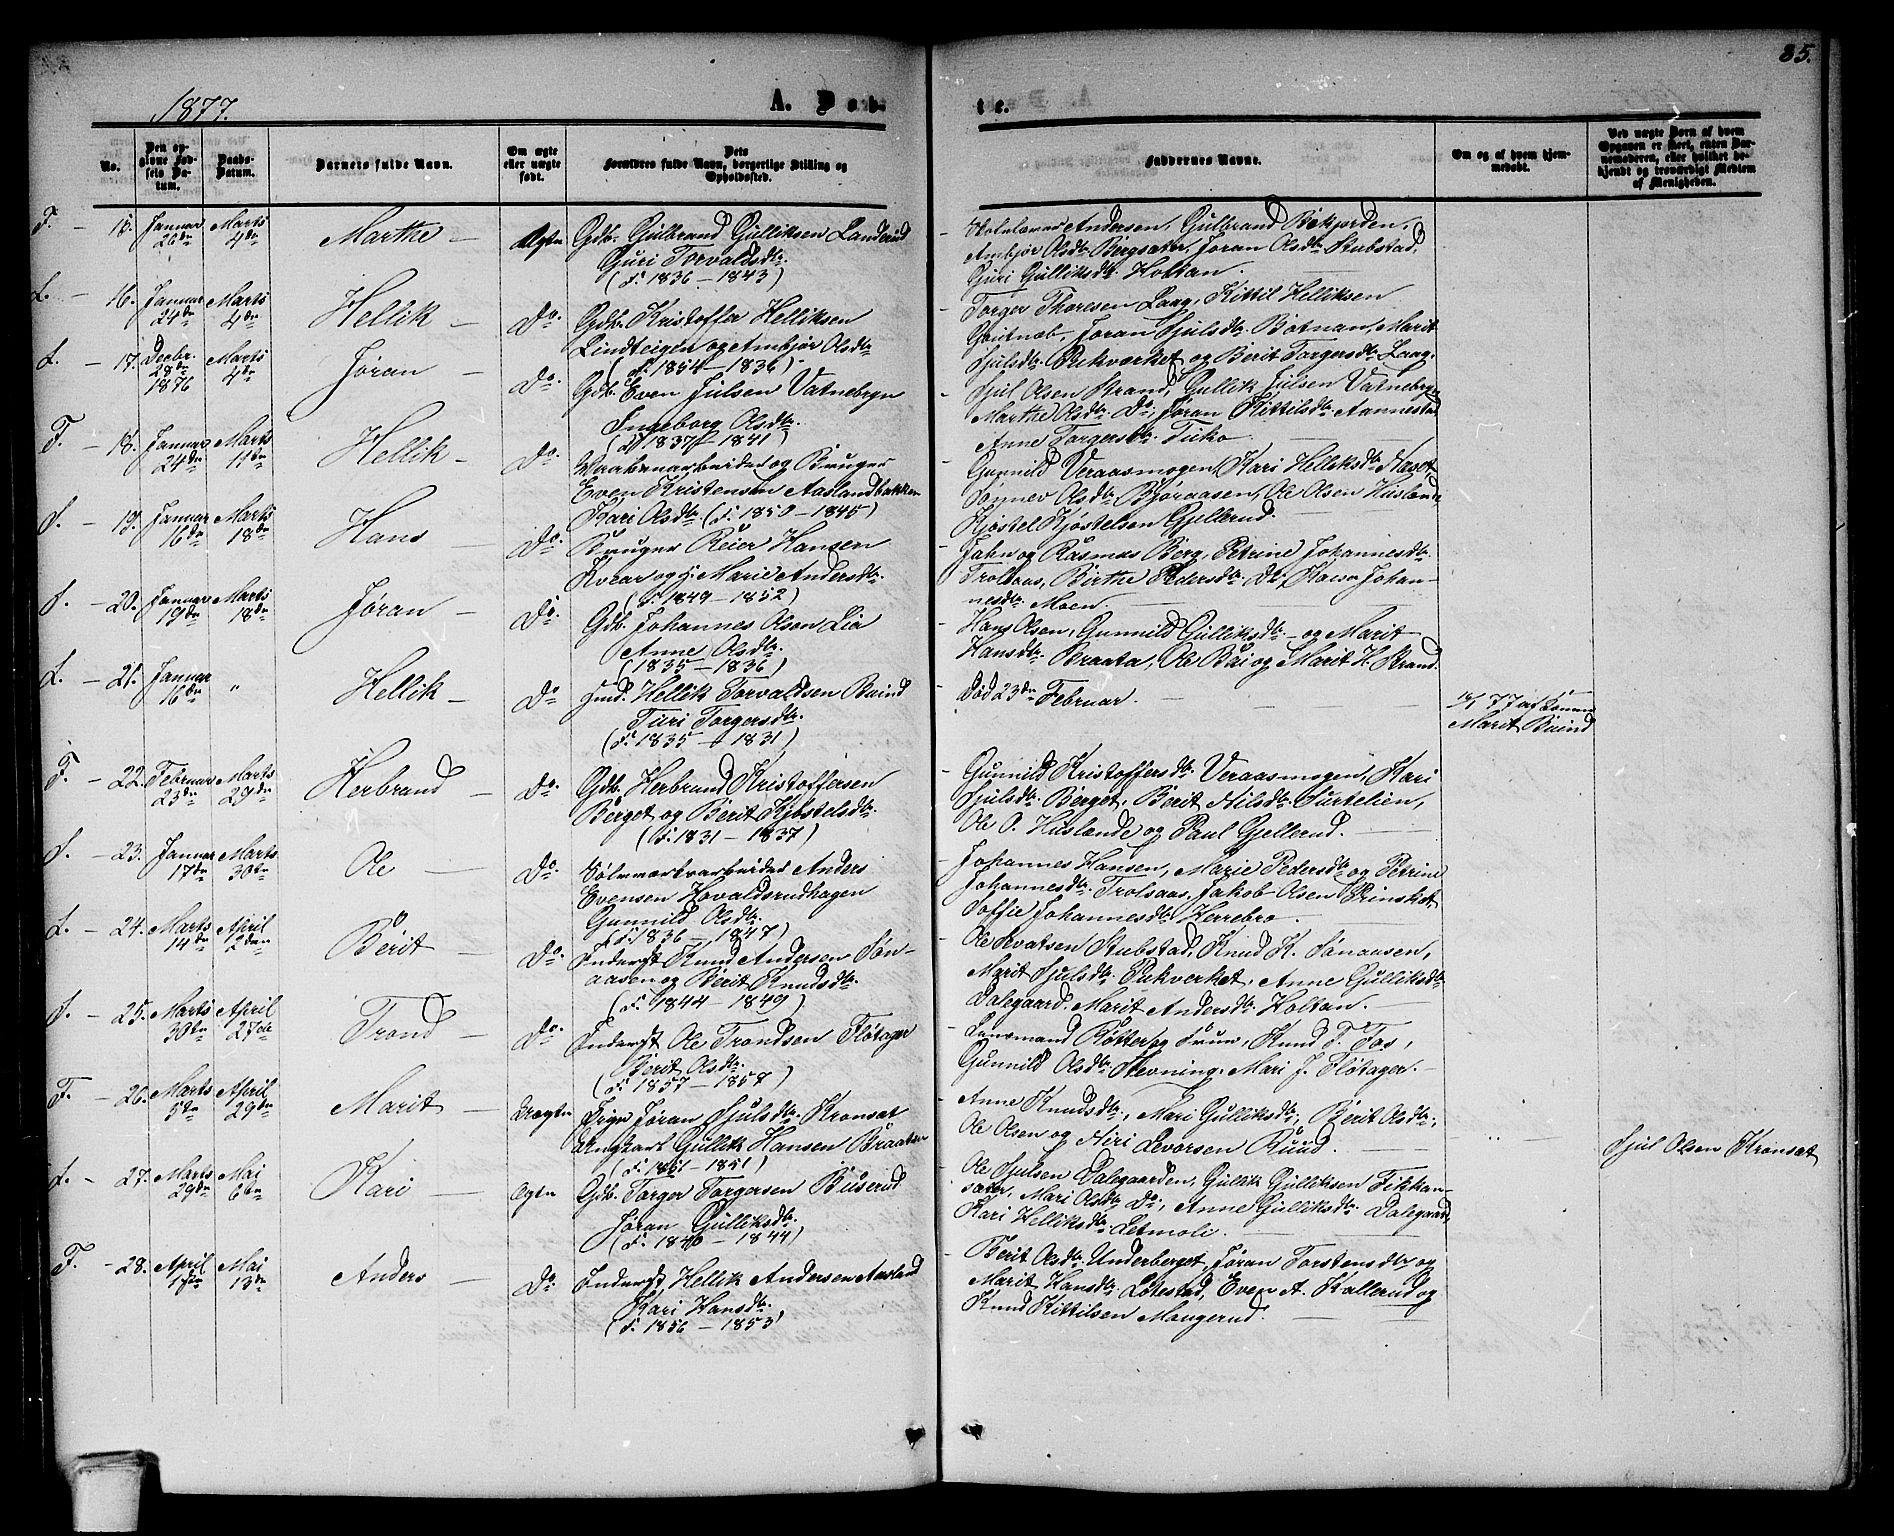 85.
1877.
A. Døbte.
No.
Den opgivne Fødsels Datum.
Daabs-Datum.
Barnets fulde Navn.
Om ægte eller uægte født.
Dets Forældres fulde Navn, borgerlige Stilling og Opholdssted.
Faddernes Navne.
Om og af hvem hjemmedøbt.
Ved uægte Børn af hvem Opgaven er skeet, enten Barnemoderen, eller hvilket bekjendt og troværdigt Medlem af Menigheden.
F. – 15. Januar 26de Marts 4de Marthe – Ægte
Gdb. Gulbrand Gulliksen Landerud
Guri Torvaldsdtr.
(F. 1836 – 1843)
Andersen, Gulbrand Bekjorden,
Ambjør Olsdtr. Bergsæter, Jøran Olsdtr. Stubstad,
Guri Gulliksdtr. Holtan.
f. – 16. Januar 24de Marts 4de Hellik – Do.
Gdb. Kristoffer Helliksen
Lindteigen og Ambjør Olsdtr.
(f. 1854 – 1836)
Torger Thoresen Laag, Kittil Helliksen
Jøran Sjulsdtr. Botnan, Marit
Sjulsdtr. Pukverket og Berit Torgersdtr. Laag.
f. – 17. Decbr. 28de 1876 Marts 4de Jøran – Do.
Gdb. Even Julsen Vatnebryn
Ingeborg Olsdtr.
(f. 1837 – 1841)
Sjul Olsen Strand, Gullik Julsen Vatnebryn
Marthe Olsdtr. Do., Jøran Kittilsdtr. Aannestad
Anne Torgersdtr. Tuko.
F. – 18. Januar 24de Marts 11te Hellik – Do.
Vaabenarbeider og Bruger
Even Kristensen Aaslandbakken
Kari Olsdtr. (f. 1850 – 1845)
Gunnild Veraasmogen, Kari Helliksdtr. Næset,
Sønnev Olsdtr. Bjøraasen, Ole Olsen Huslende
Kjøstel Kjøstelsen Gjellerud.
f. – 19. Januar 16de Marts 18de Hans – Do.
Bruger Reier Hansen
Kvear og h. Marie Andersdtr.
(f. 1849 – 1852)
Jahn og Rasmus Berg, Petrine Johannesdtr.
Trolsaas, Birthe Pedersdtr. Do., Karen Johan-
nesdtr. Moen.
f. – 20. Januar 19de Marts 18de Jøran – Do.
Gdb. Johannes Olsen Lia
Anne Olsdtr.
(1835 – 1836)
Hans Olsen, Gunnild Gulliksdtr. og Marit
Hansdtr. Braata, Ole Bøi og Marit H. Strand.
f. – 21. Januar 16de " Hellik – Do
Hmd. Hellik Torvaldsen Buind
Turi Torgersdtr.
(f. 1835 – 1831)
Død 23de Februar.
Marit Buind
F. – 22. Februar 23de Marts 29de Herbrand – Do.
Gdb. Herbrand Kristoffersen
Berget og Berit Kjøstelsdtr.
(f. 1831 – 1837)
Gunnild Kristoffersdtr. Veraasmogen, Kari
Sjulsdtr. Berget, Berit Nilsdtr. Surtelien,
Ole P. Huslende og Paul Gjellerud.
f. – 23. Januar 17de Marts 30te Ole – Do.
Sølvværksarbeider Anders
Evensen Hovaldsrudhagen
Gunnild Olsdtr.
(f. 1836 – 1847)
Johannes Hansen, Marie Pedersdtr. og Petrine
Johannesdtr. Trolsaas, Jakob Olsen Prinshet
Soffie Johannesdtr. Herrebro.
f. – 24. Marts 14de April 2den Berit – Do.
Inderst Knud Andersen Søn-
aasen og Berit Knudsdtr.
(f. 1844 – 1849)
Ole Svatsen Stubstad, Knud K. Sønaasen,
Marit Sjulsdtr. Pukverket, Anne Gulliksdtr.
Dalegaard, Marit Andersdtr. Holtan.
f. – 25. Marts 30te April 27de Trond – Do.
Inderst Ole Trondsen Fløtager
Berit Olsdtr.
(f. 1857 – 1857)
Lensmand Røtterog Frue, Knud T. Fos,
Gunnild Olsdtr. Stevning, Mari J. Fløtager.
F. – 26. Marts 5te April 29de Marit – Uægte
Pige Jøran Sjulsdtr. Kronsæt
Ungkarl Gullik Hansen Braaten
(f. 1851 – 1851)
Anne Knudsdtr., Mari Gulliksdtr., Berit Olsdtr.,
Ole Olsen og Niri Levorsen Ruud.
Sjul Olsen Kronsæt
f. – 27. Marts 29de Mai 6te Kari – Ægte
Gdb. Torger Torgersen Buserud
Jøran Gulliksdtr.
(f. 1840 – 1844)
Ole Sjulsen Dalegaarden, Gullik Gulliksen Fekkan-
sæter, Mari Olsdtr. Do., Anne Gulliksdtr. Dalegaard,
Kari Helliksdtr. Letmoli.
F. – 28. April 17de Mai 13de Anders – Do.
Inderst Hellik Andersen Aasland
Kari Hansdtr.
(f. 1856 – 1853)
Berit Olsdtr. Underberget, Jøran Torstensdtr. og
Marit Hansdtr. Løkestad, Even A. Kallerud og
Knud Kittilsen Maugerud.